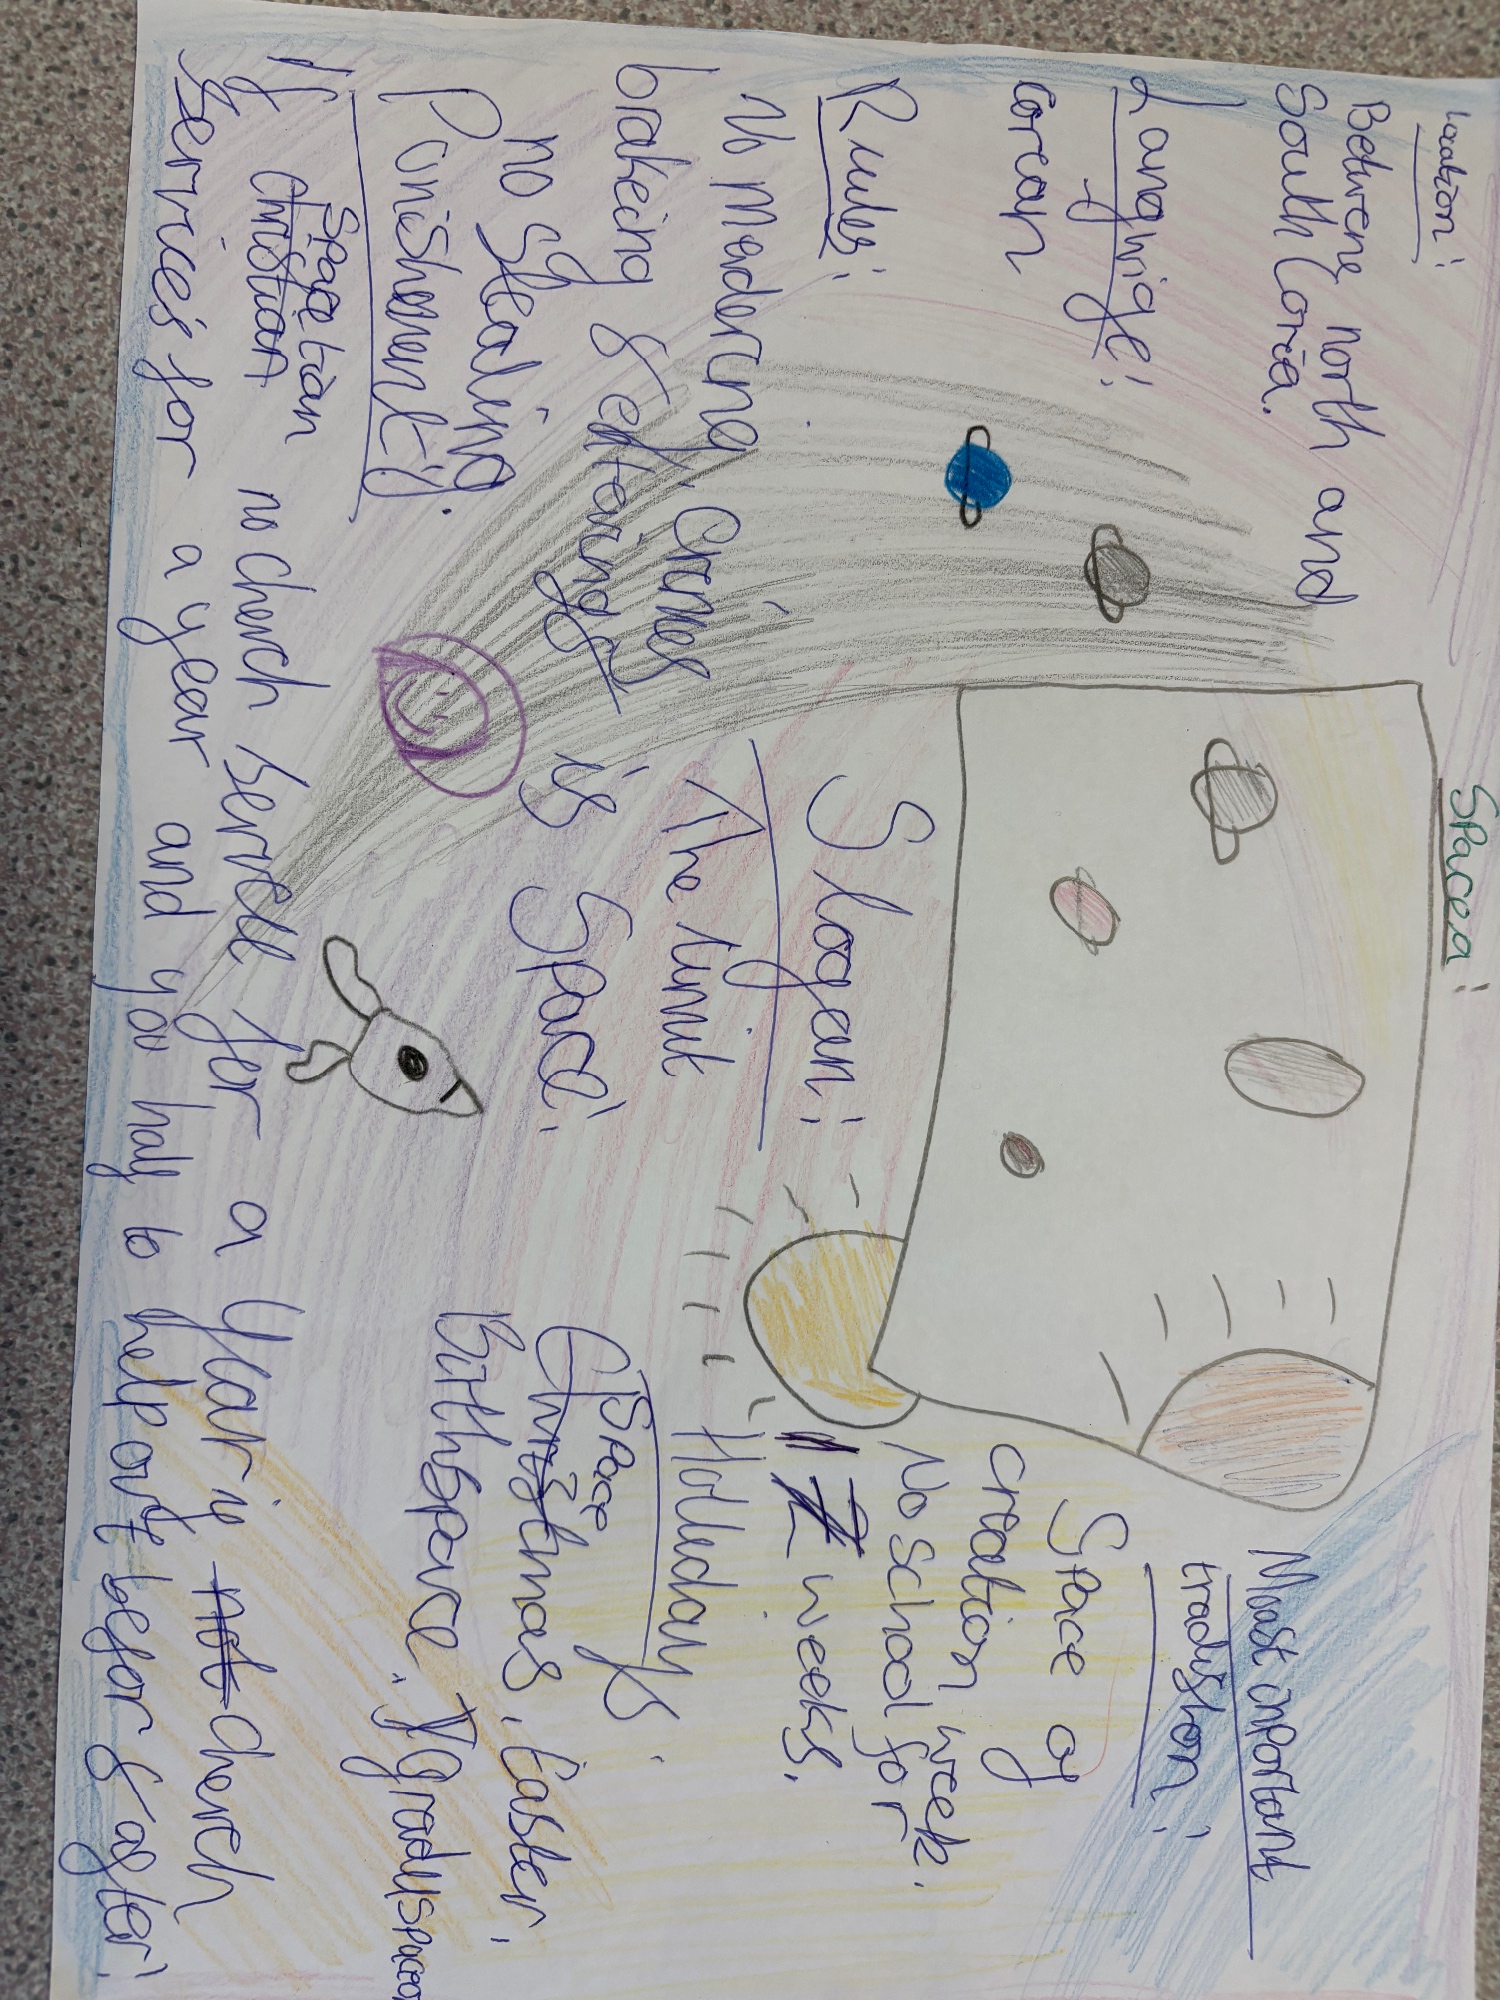 Spacea!
Location!
Betwene north and
South Coria.
Langhige!
Corean
Rules!
No madercing, Crimes
brakeing & extarings
no Stealing.
Punishment!
Spacetian
If Christian no cherch Servell for a Year is not cherch
Services for a year and you haly to help out befor & after!
Slogan!
The limit
is Space!
Most inportant
tradistion!
Space of
creation week.
No school for
2 weeks.
Holleday's.
Space
Christmas, Easter,
Birthspace, Igradispacea